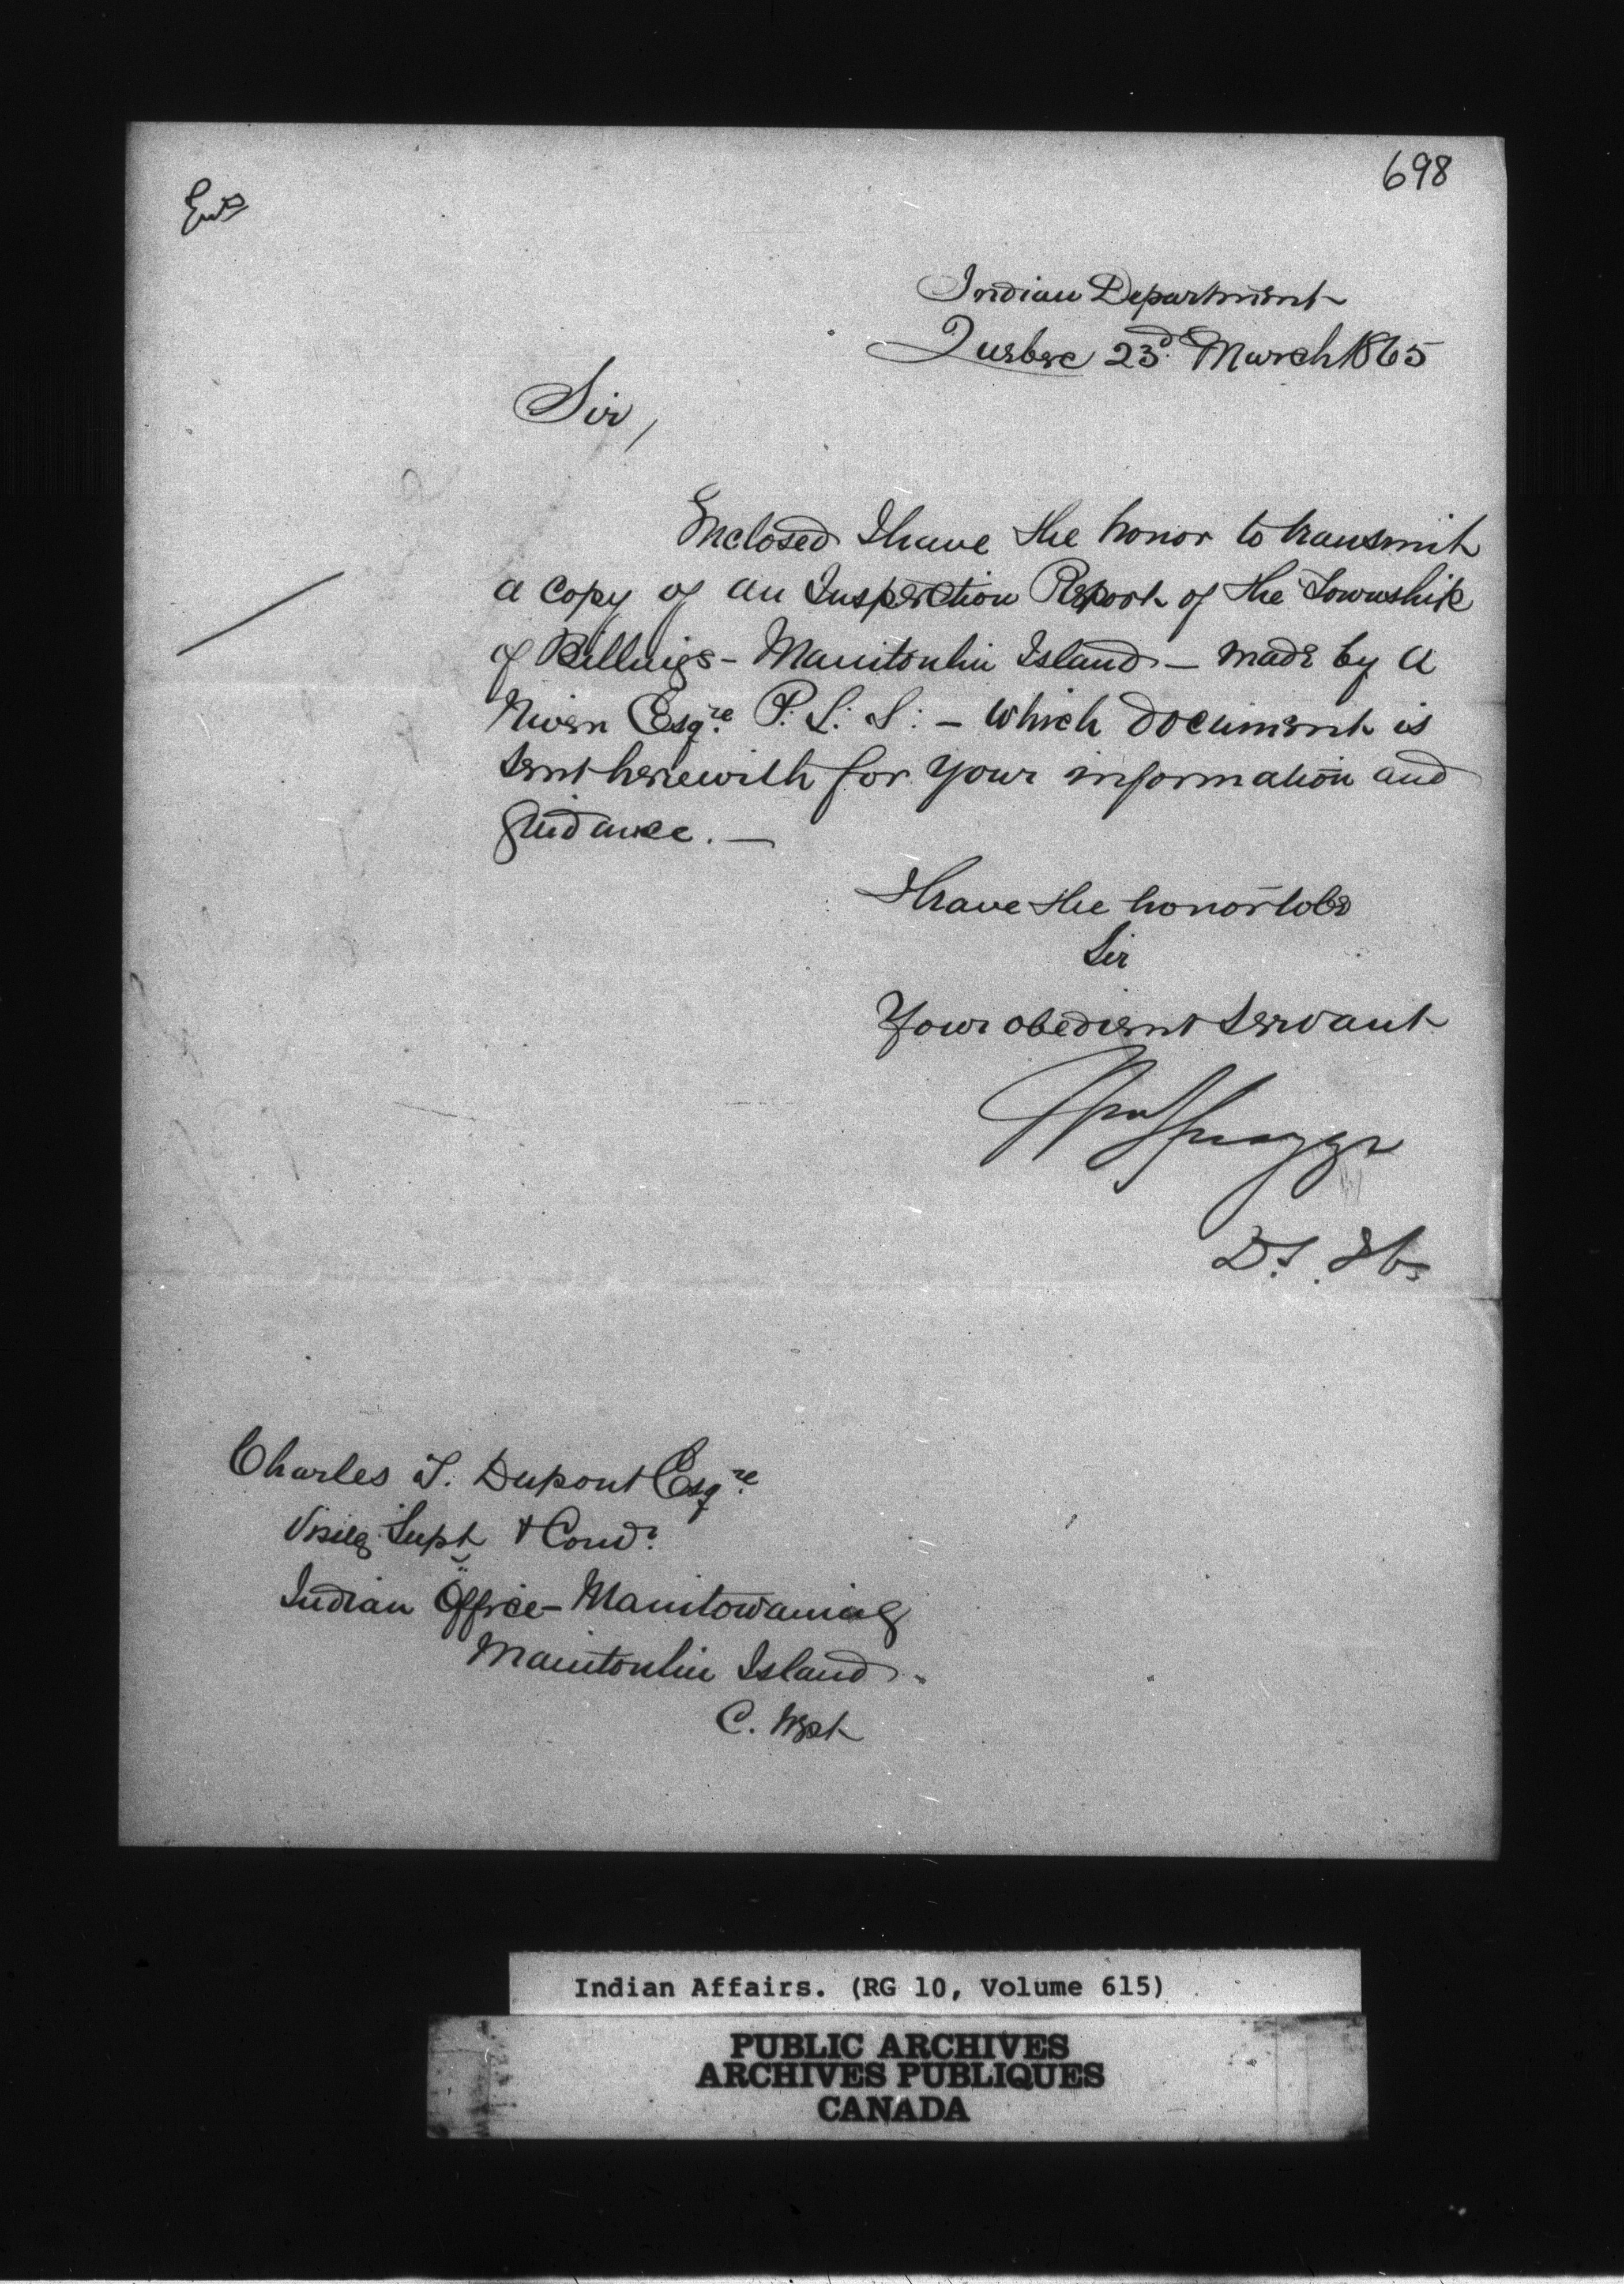 698
Indian Department
Quebec 23d. March 1865
Sir,
Enclosed I have the honor to transmit
a copy of an Inspection Report of the Township
of Billings - Manitoulin Island - made by A
Niven Esqre. P. L. S: - which document is
sent herewith for your information and
guidance. -
I have the honor to be
Sir
Your obedient servant
Wm Spragge
D. S. I. A.
Charles T. Dupont Esqre.
Visitg. Supt. & Comr.
Indian Office - Manitowaning
Manitoulin Island.
C. West
Indian Affairs. (RG 10, Volume 615)
PUBLIC ARCHIVES
ARCHIVES PUBLIQUES
CANADA